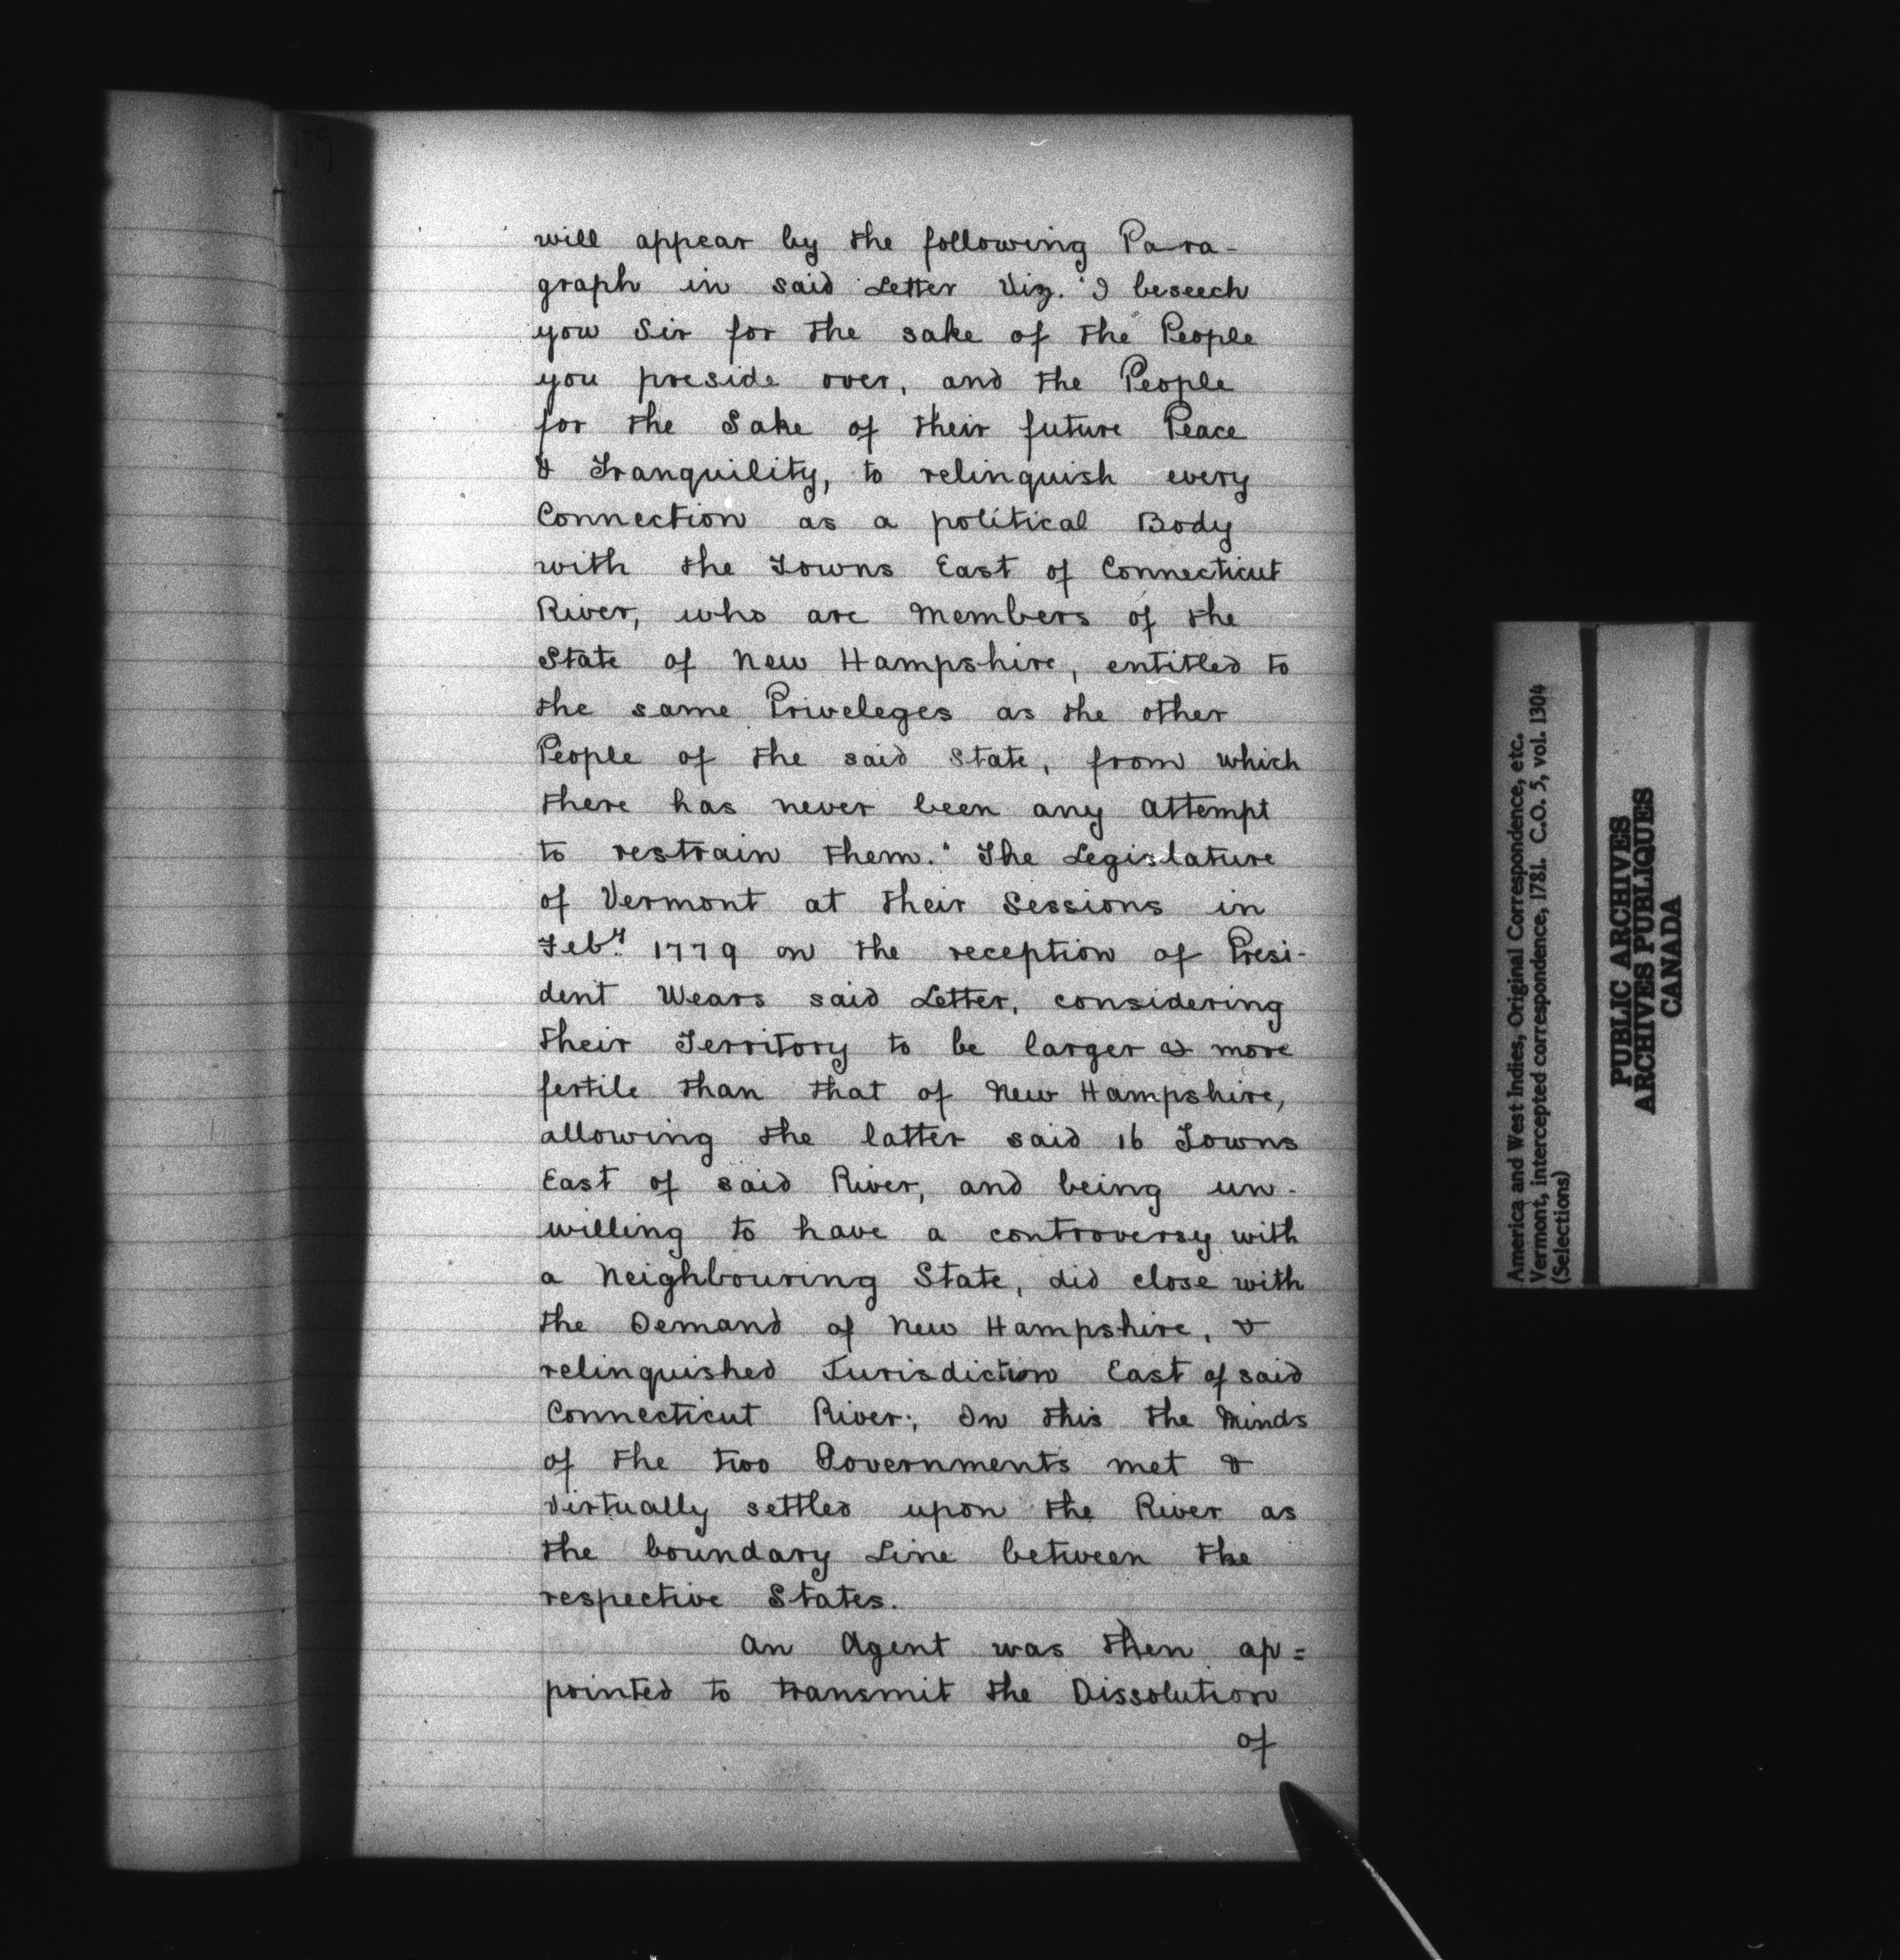 will appear by the following Para-
graph in said Letter Viz. "I beseech
you Sir for the sake of the People
you preside over, and the People
for the Sake of their future Peace
& Tranquility, to relinquish every
Connection as a political Body
with the Towns East of Connecticut
River, who are Members of the
State of New Hampshire, entitled to
the same Priveleges as the other
People of the said State, from which
there has never been any attempt
to restrain them." The Legislature
of Vermont at their Sessions in
Feby 1779 on the reception of Presi-
dent Wears said Letter, considering
their Territory to be larger & more
fertile than that of New Hampshire,
allowing the latter said 16 Towns
East of said River, and being un-
willing to have a controversy with
a Neighbouring State, did close with
the Demand of New Hampshire, &
relinquished Jurisdiction East of said
Connecticut River; In this the Minds
of the two Governments met &
virtually settled upon the River as
the boundary Line between the
respective States.
An Agent was then ap=
pointed to transmit the Dissolution
of
America and West Indies, Original Correspondence, etc.
Vermont, intercepted correspondence, 1781. C.O. 5, vol. 1304
(Selections)
PUBLIC ARCHIVES
ARCHIVES PUBLIQUES
CANADA